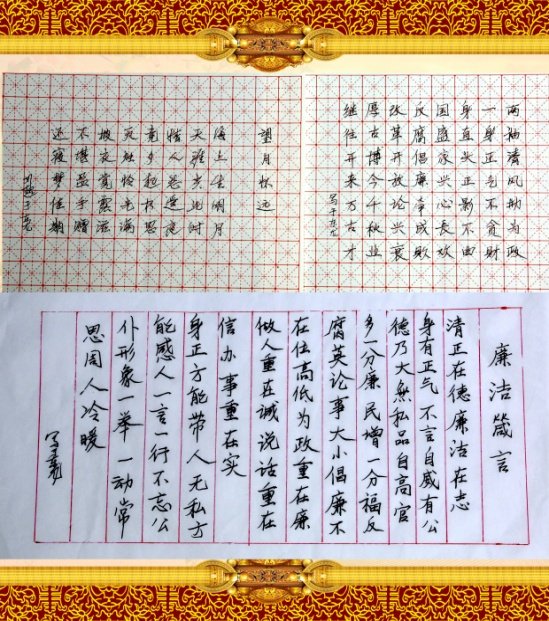 望月怀远
海上生明月
天涯共此时
情人怨遥夜
竟夕起相思
灭烛怜光满
披衣觉露滋
不堪盈手赠
还寝梦佳期
两袖清风勤为政
一身正气不贪財
身直头正影不曲
国盛家兴心長欢
反腐倡廉争成敗
改革开放论兴衰
厚古博今千秋业
继往开来万古才
廉洁箴言
清正在德廉洁在志
身有正气不言自威有公
德乃大無私品自高官
多一分廉民增一分福反
腐英论事大小倡廉不
在位高低为政重在廉
做人重在诚说话重在
信办事重在实
身正方能带人无私方
能感人一言一行不忘公
仆形象一举一动常
思周人冷暖